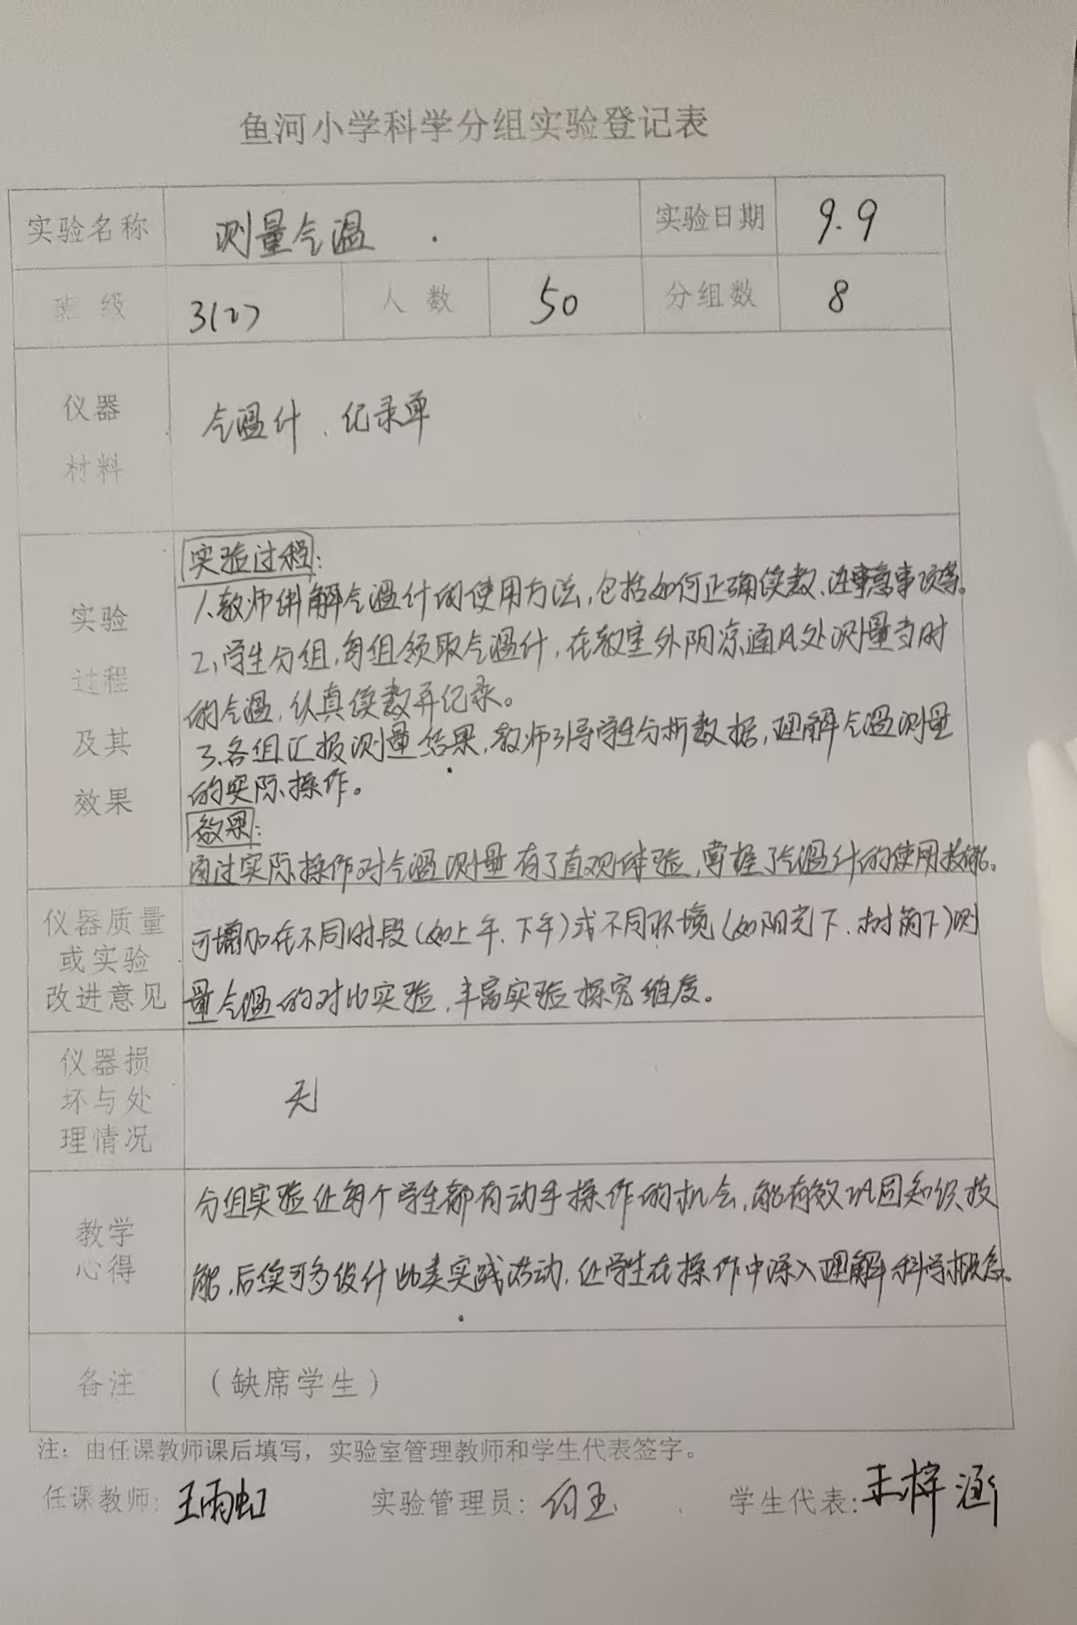 鱼河小学科学分组实验登记表
实验名称 测量气温 实验日期 9.9
班级 3(2) 人数 50 分组数 8
仪器
材料
气温计、纪录单
实验
过程
及其
效果
实验过程:
1、教师讲解气温计的使用方法,包括如何正确读数、注意事项等。
2、学生分组,每组领取气温计,在教室外阴凉通风处测量当时
的气温,认真读数并记录。
3、各组汇报测量结果,教师引导学生分析数据,理解气温测量
的实际操作。
效果:
通过实际操作对气温测量有了直观体验,掌握了气温计的使用技能。
仪器质量
或实验
改进意见
可增加在不同时段(如上午、下午)或不同环境(如阳光下、树荫下)测
量气温的对比实验,丰富实验探究维度。
仪器损
坏与处
理情况
无
教学
心得
分组实验让每个学生都有动手操作的机会,能有效巩固知识技
能,后续可多设计此类实践活动,让学生在操作中深入理解科学概念。
备注 (缺席学生)
注:由任课教师课后填写,实验室管理教师和学生代表签字。
任课教师:王雨虹 实验管理员: 学生代表:王梓涵